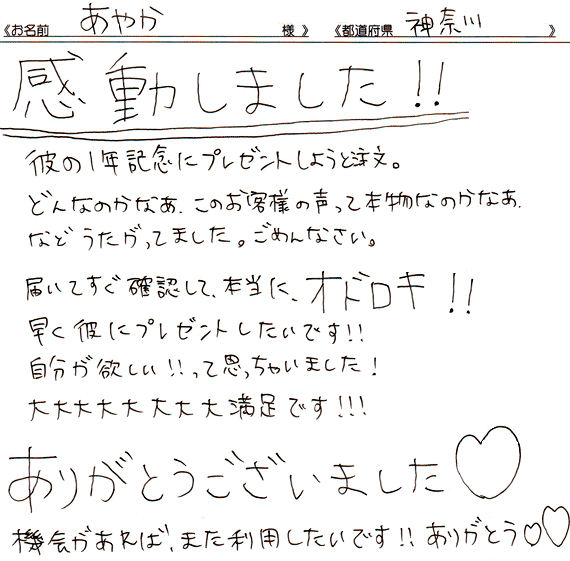 《お名前 あやか 様 》 《都道府県 神奈川 》
感動しました!!
彼の1年記念にプレゼントしようと注文。
どんなのかなあ、このお客様の声って本物なのかなあ、
などうたがってました。ごめんなさい。
届いてすぐ確認して、本当に、オドロキ!!
早く彼にプレゼントしたいです!!
自分が欲しい!!って思っちゃいました!
大大大大大大大大満足です!!!
ありがとうございました♡
機会があれば、また利用したいです!!ありがとう♡♡